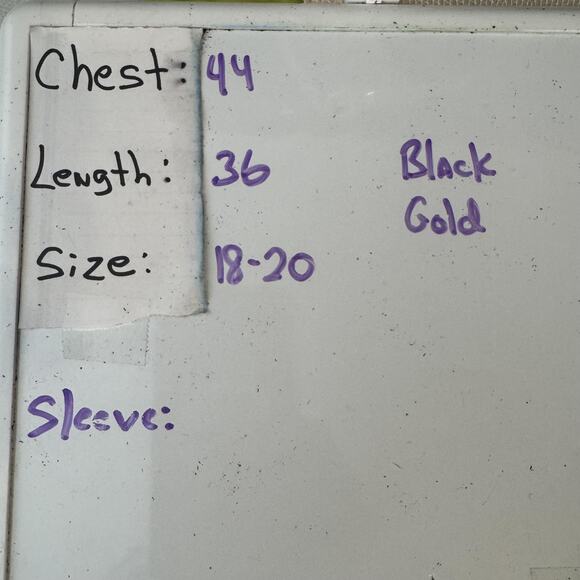 Chest: 44
Length: 36
Black
Gold
Size: 18-20
Sleeve: